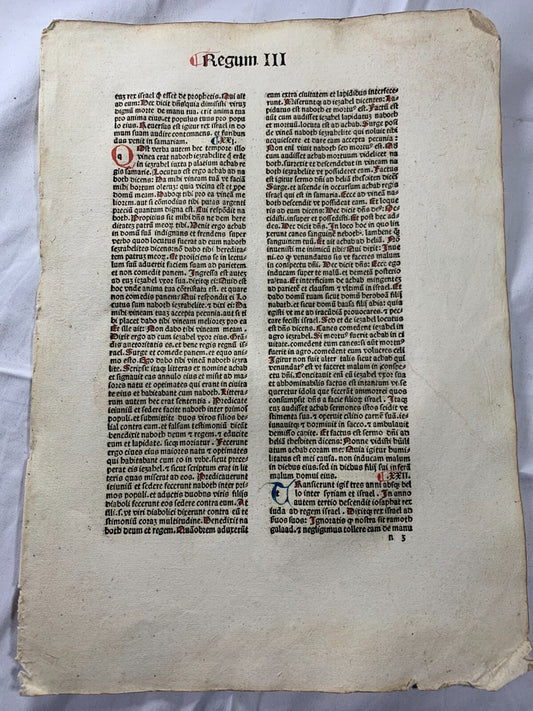 Regum III
eum rex israel q̃ esset de prophetis. Qui ait
ad eum: Hec dicit dñs: quia dimisisti virũ
dignũ morte de manu tua: erit anima tua
pro anima eius, et populus tuus pro popu
lo eius. Reuersus est igitur rex israel in do
mum suam audire contemnens, et furibun
dus venit in samariam. XXI.
POst verba autem hec tempore illo
vinea erat naboth iezrahelite q̃ erat
in iezrahel iuxta palatium achab re
gis samarie. Locutus est ergo achab ad na
both dicens: Da mihi vineam tuã vt faciã
mihi hortum olerum: quia vicina est et ꝓpe
domũ meam. Daboqʒ tibi pro ea vineã me
liorem: aut si cõmodius tibi putas argenti
preciũ quantum digna est. Cui respõdit na
both. Propicius sit mihi dñs ne dem heredi
tatem patrũ meoꝝ tibi. Venit ergo achab
in domũ suã indignans et frendens super
verbo quod locutus fuerat ad eum naboth
iezrahelites dicens: Nõ dabo tibi heredita
tem patrum meoꝝ. Et proijciens se in lectu
lum suũ auertit faciem suam ad parietem
et non comedit panem. Ingressa est autẽ
ad eum iezabel vxor sua, dixitqʒ ei: Quid est
hoc vnde anima tua cõtristata est, et quare
non comedis panem? Qui respondit ei: Lo
cutus sum naboth iezrahelite, et dixi ei:
Da mihi vineam tuam accepta pecunia: aut si ti
bi placet dabo tibi vineam meliorẽ pro ea
Et ille ait: Non dabo tibi vineam meam.
Dixit ergo ad eum iezabel vxor eius. Grã
dis auctoritatis es, et bene regis regnũ is
rael. Surge et comede panem, et equo ani
mo esto. Ego dabo tibi vineã naboth iezra
helite. Scripsit itaqʒ literas ex nomine achab
et signauit eas annulo eius et misit ad ma
iores natu et optimates qui erant in ciuita
te eius et habitabant cum naboth. Litera
rum autem hec erat sententia. Predicate
ieiuniũ et sedere facite naboth inter primos
populi, et submittite duos viros filios be
lial contra eum, et falsum testimoniũ dicãt:
benedixit naboth deum et regem, et educite
eum et lapidate, sicqʒ moriatur. Fecerunt
ergo ciues eius maiores natu et optimates
qui habitabant cum eo in vrbe, sicut prece
perat eis iezabel, et sicut scriptum erat in lit
teris quas miserat ad eos. Predicauerunt
ieiuniũ et sedere fecerunt naboth inter pri
mos populi, et adductis duobus viris filijs
diaboli fecerunt eos sedere contra eum. At
illi, s. vt viri diabolici dixerunt contra eũ te
stimoniũ coram multitudine. Benedixit na
both deum et regem. Quãobrem adduxerũt
eum extra ciuitatem et lapidibus interfece
runt. Miseruntqʒ ad iezabel dicentes: La
pidatus est naboth et mortuus est. Factũ est
aũt cum audisset iezabel lapidatum naboth
et mortuũ, locuta est ad achab. Surge posi
de vineã naboth iezrahelite qui noluit tibi
acquiescere et dare eam accepta pecunia:
Non enĩ viuit naboth sed mortuus est. Qd̃
cum audisset achab mortuum videlicet na
both surrexit et descendebat in vineam na
both iezrahelite vt possideret eam. Factus
est igitur sermo dñi ad heliã thesbiten dicẽs
Surge et ascende in occursum achab regis
israel qui est in samaria. Ecce ad vineã naboth
descendit vt possideat eam. Et loque
ris ad eum dicens: Hec dicit dñs: Oc
cidisti, insuper et possedisti. Et post hec ad
des. Hec dicit dñs. In loco hoc in quo lin
xerunt canes sanguinẽ naboth, lambent q̃qʒ
sanguinem tuũ. Et ait achab ad heliã. Nũ
inuenisti me inimicũ tibi? Qui dixit: Inue
ni, eo qʒ venundatus sis vt faceres malum
in conspectu dñi. Hec dicit dñs: Ecce ego
inducam super te malũ, et demetã posterio
ra tua: Et interficiam de achab mingentẽ
ad parietẽ et clausũ et vltimũ in israel. Et
dabo domũ tuam sicut domũ hieroboã filij
nabath, et sicut domũ baasa filij ahia: quia
egisti vt me ad iracũdiã prouocares, et pec
care fecisti israel. Sed et de iezabel locutus
est dñs dicens. Canes comedent iezabel in
agro iezrahel. Si mortuus fuerit achab in ci
uitate, comedent eum canes: si aũt mortuus
fuerit in agro, comedent eum volucres celi
Igitur non fuit alter talis sicut achab qui
venundatus est vt faceret malum in conspe
ctu dñi. Concitauit enĩ eũ iezabel vxor sua
et abominabilis factus est intantum vt se
queretur idola que fecerãt amorrei quos
consumpsit dñs a facie filioꝝ israel. Itaqʒ
cum audisset achab sermones istos scidit ve
stimenta sua, et operuit cilicio carnẽ suã, ie
iunauitqʒ et dormiuit in sacco, et ambulauit
demisso capite. Et factus est sermo dñi ad
heliã thesbiten dicens: Nonne vidisti humi
liatum achab coram me: Quia igitur humi
liatus est mei causa, non inducam malum
in diebus eius, sed in diebus filij sui inferã
malum domui eius. XXII.
TRansierunt igitur tres anni absqʒ bel
lo inter syriam et israel. In anno
autem tertio descendit iosaphat rex
iuda ad regem israel. Dixitqʒ rex israel ad
suos suos: Ignoratis qʒ nostra sit ramoth
galaad, et negligimus tollere eam de manu
n 3